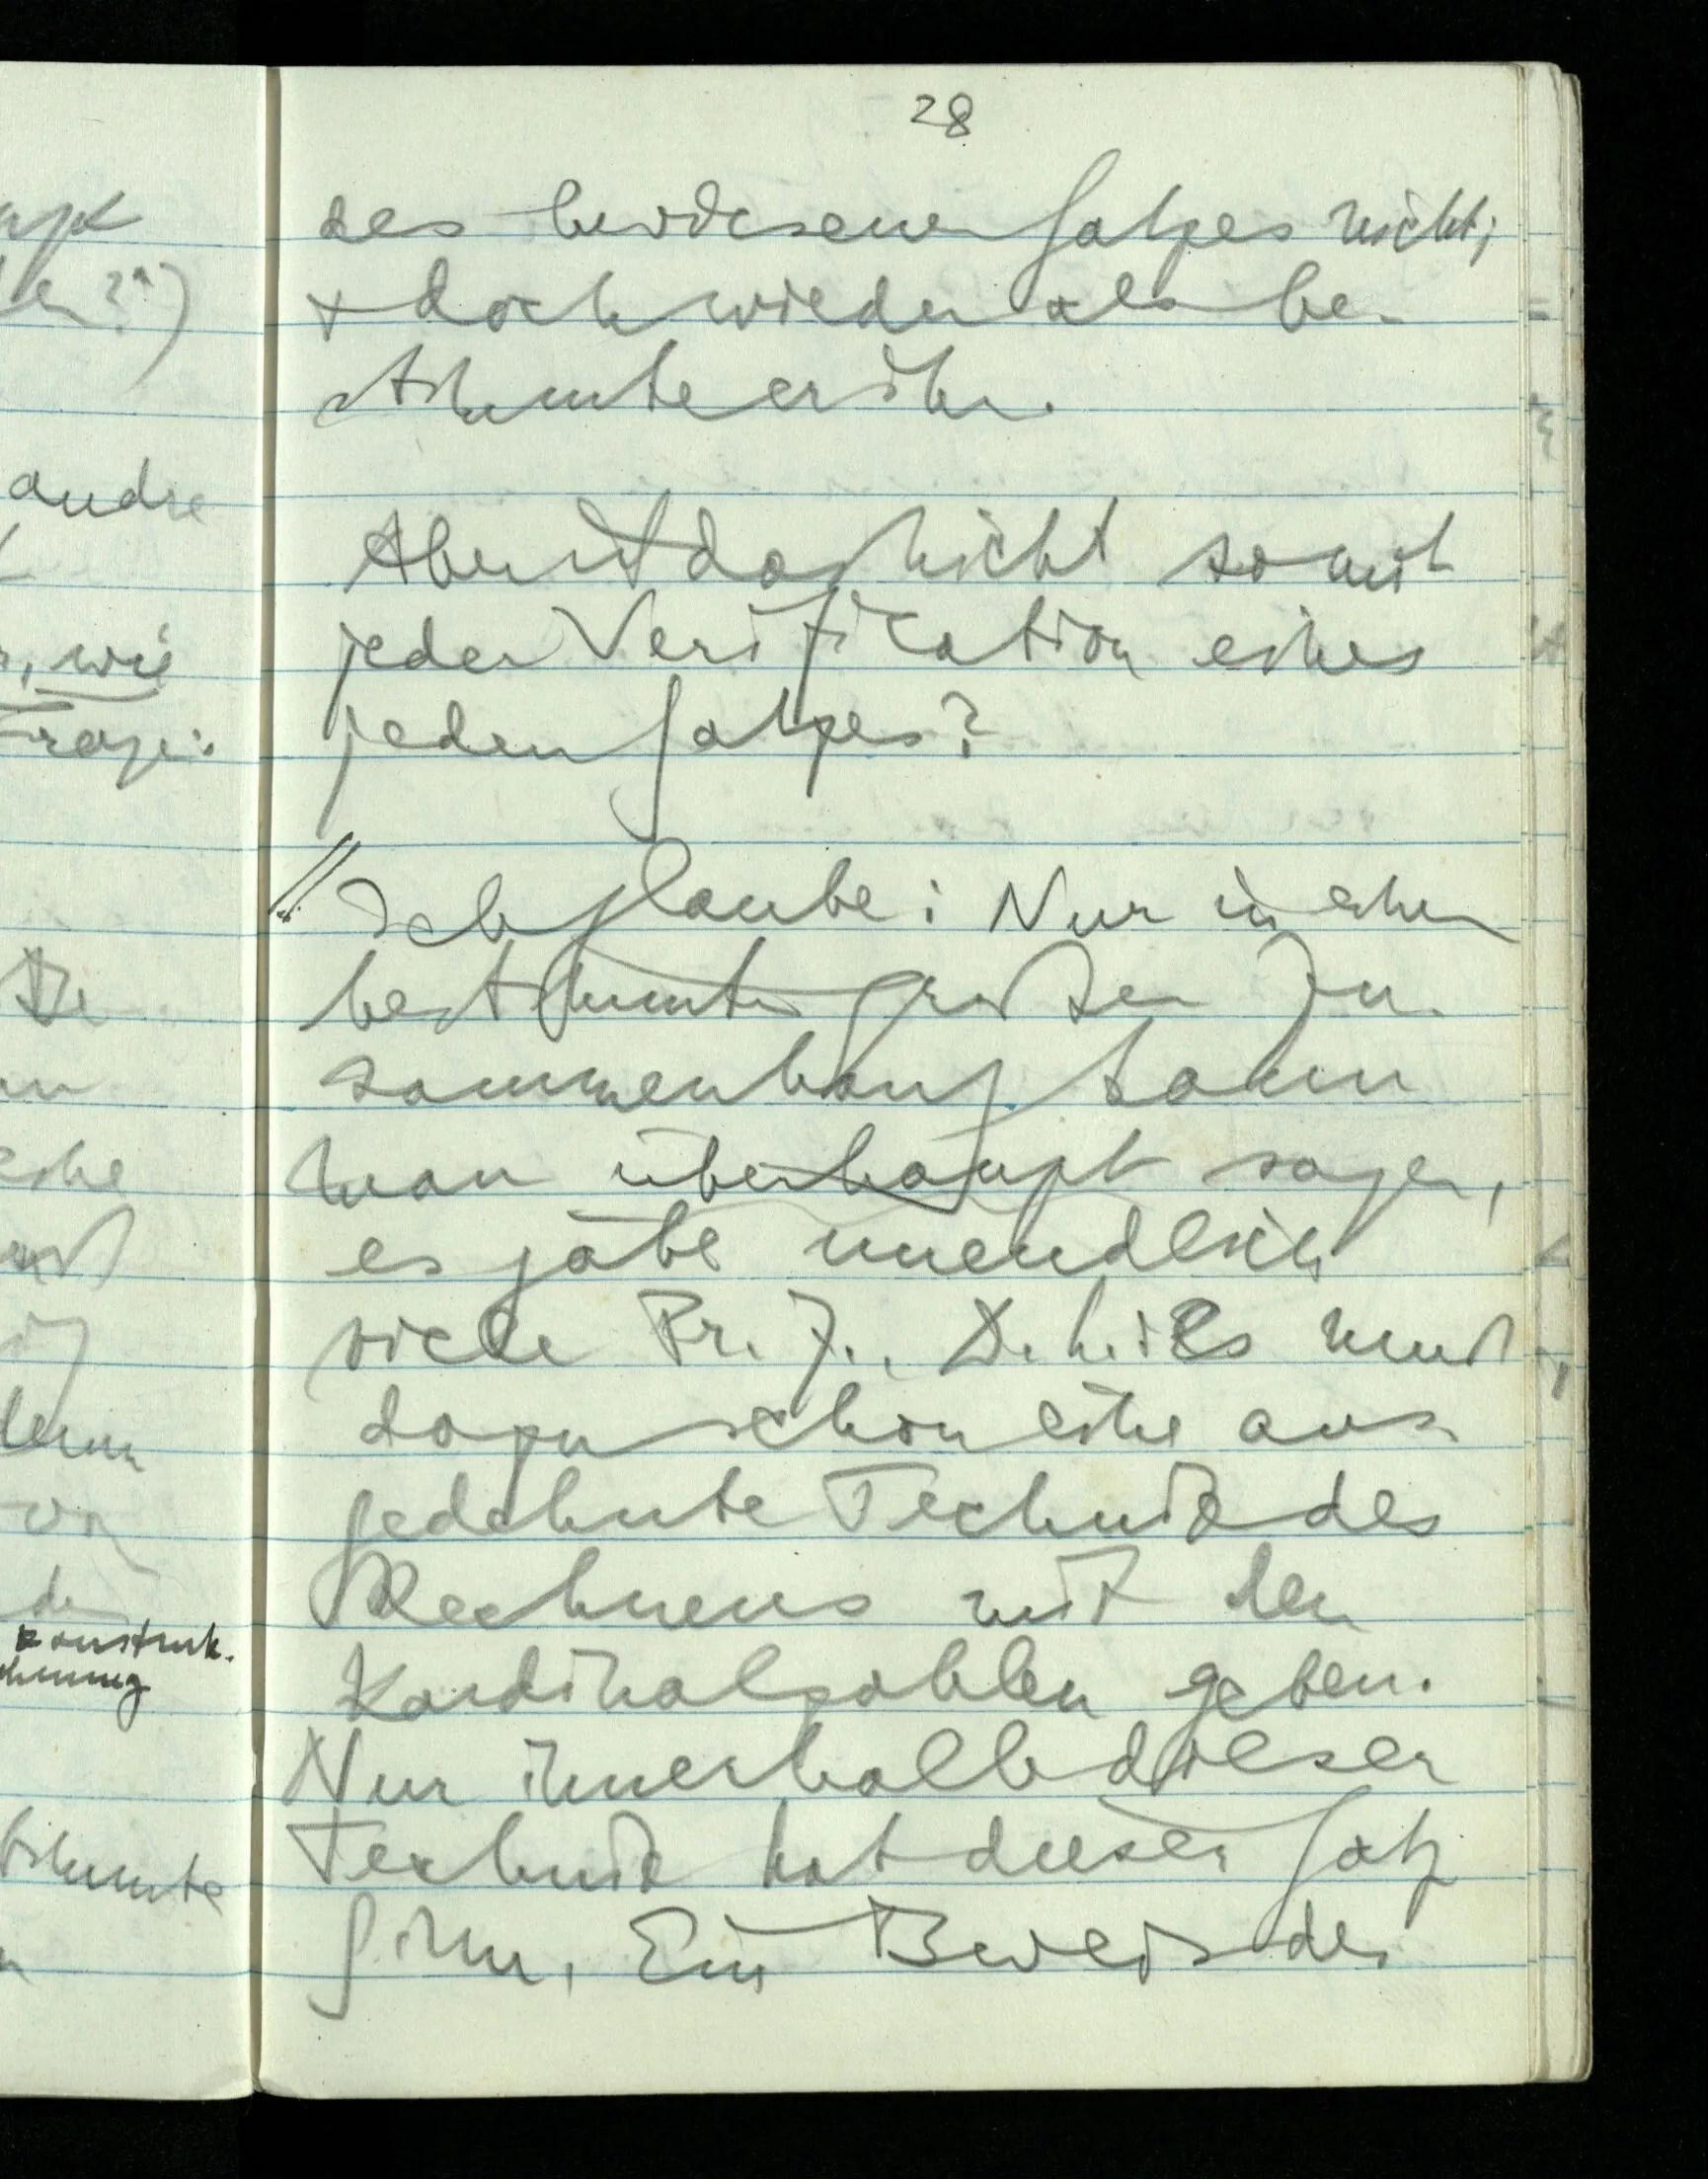 28
des bewiesenen Satzes nicht;
& doch wieder als be-
stimmte ersten.
Aber ist das nicht so mit
jeder Verification eines
jeden Satzes?
// Ich glaube: Nur in einem
bestimmten großen Zu-
sammenhang kann
man überhaupt sagen,
es gäbe unendlich
viele Pr. Z.. D.h.: Es muß
dazu schon eine aus-
gedehnte Technik des
Rechnens mit den
Kardinalzahlen geben.
Nur innerhalb dieser
Technik hat dieser Satz
Sinn. Ein Beweis des
andre
, wie
Frage:
konstruk-